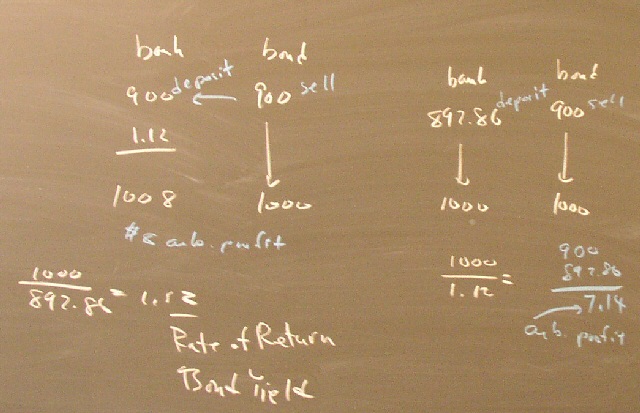 bank bond
900 deposit ← 900 sell
1.12
1008 1000
$8 arb. profit
1000
892.86 = 1.12
Rate of Return
Bond Yield
bank bond
892.86 deposit 900 sell
1000 1000
1000
1.12 =
900
892.86
7.14
arb. profit